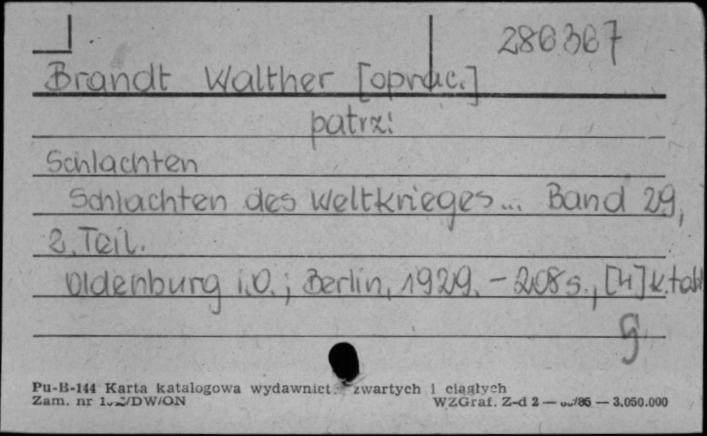 286367
Brandt Walther [oprac.]
patrz:
Schlachten
Schlachten des Weltkrieges... Band 29,
2. Teil.
Oldenburg i.O.; Berlin, 1929. - 208 s., [4] k. tabl
Pu-B-144 Karta katalogowa wydawnict zwartych i ciągłych
Zam. nr /DW/ON WZGraf. Z-d 2 — /86 — 3.050.000